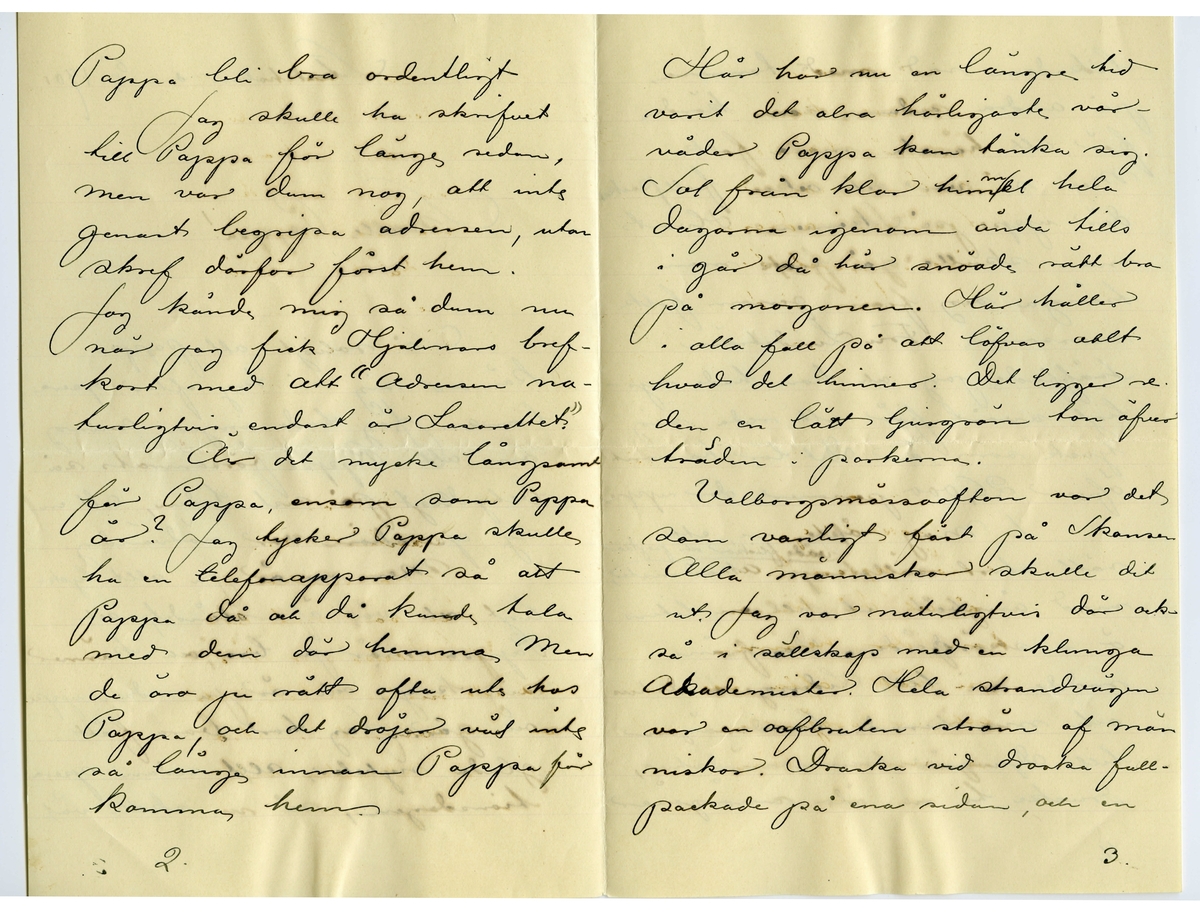 Pappa bli bra ordentligt
Jag skulle ha skrifvet
till Pappa för länge sedan,
men var dum nog, att inte
genast begripa adressen, utan
skref därför först hem.
Jag kände mig så dum nu
när jag fick Hjalmars bref-
kort med att "Adressen na-
turligtvis endast är Lasarettet"
Är det mycke långsamt
för Pappa, ensam som Pappa
är? Jag tycker Pappa skulle
ha en telefonapparat så att
Pappa då och då kunde tala
med dem där hemma. Men
de äro ju rätt ofta ute hos
Pappa, och det dröjer väl inte
så länge innan Pappa får
komma hem.
2.
Här har nu en längre tid
varit det alra härligaste vår-
väder Pappa kan tänka sig.
Sol från klar himmel hela
dagarna igenom ända tills
i går då här snöade rätt bra
på morgonen. Här håller
i alla fall på att löfvas allt
hvad det hinner. Det ligger re-
den en lätt ljusgrön ton öfver
träden i parkerna.
Valborgsmässoafton var det
som vanligt fäst på Skansen
Alla människor skulle dit
ut. Jag var naturligtvis där ock-
så i sällskap med en klunga
Akademister. Hela strandvägen
var en oafbruten ström af män
niskor. Droska vid droska full-
packade på ena sidan, och en
3.